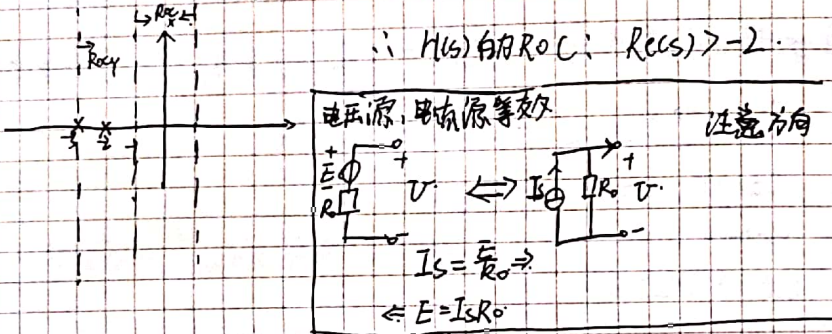 Rocx
Rocy
-3 -2 -1
∴ H(s)的ROC: Re(s)>-2.
电压源,电流源等效 注意方向
+ E - R₀ + U - ⟺ Is R₀ + U -
Is = E/R₀ ⇒
⇐ E=IsR₀